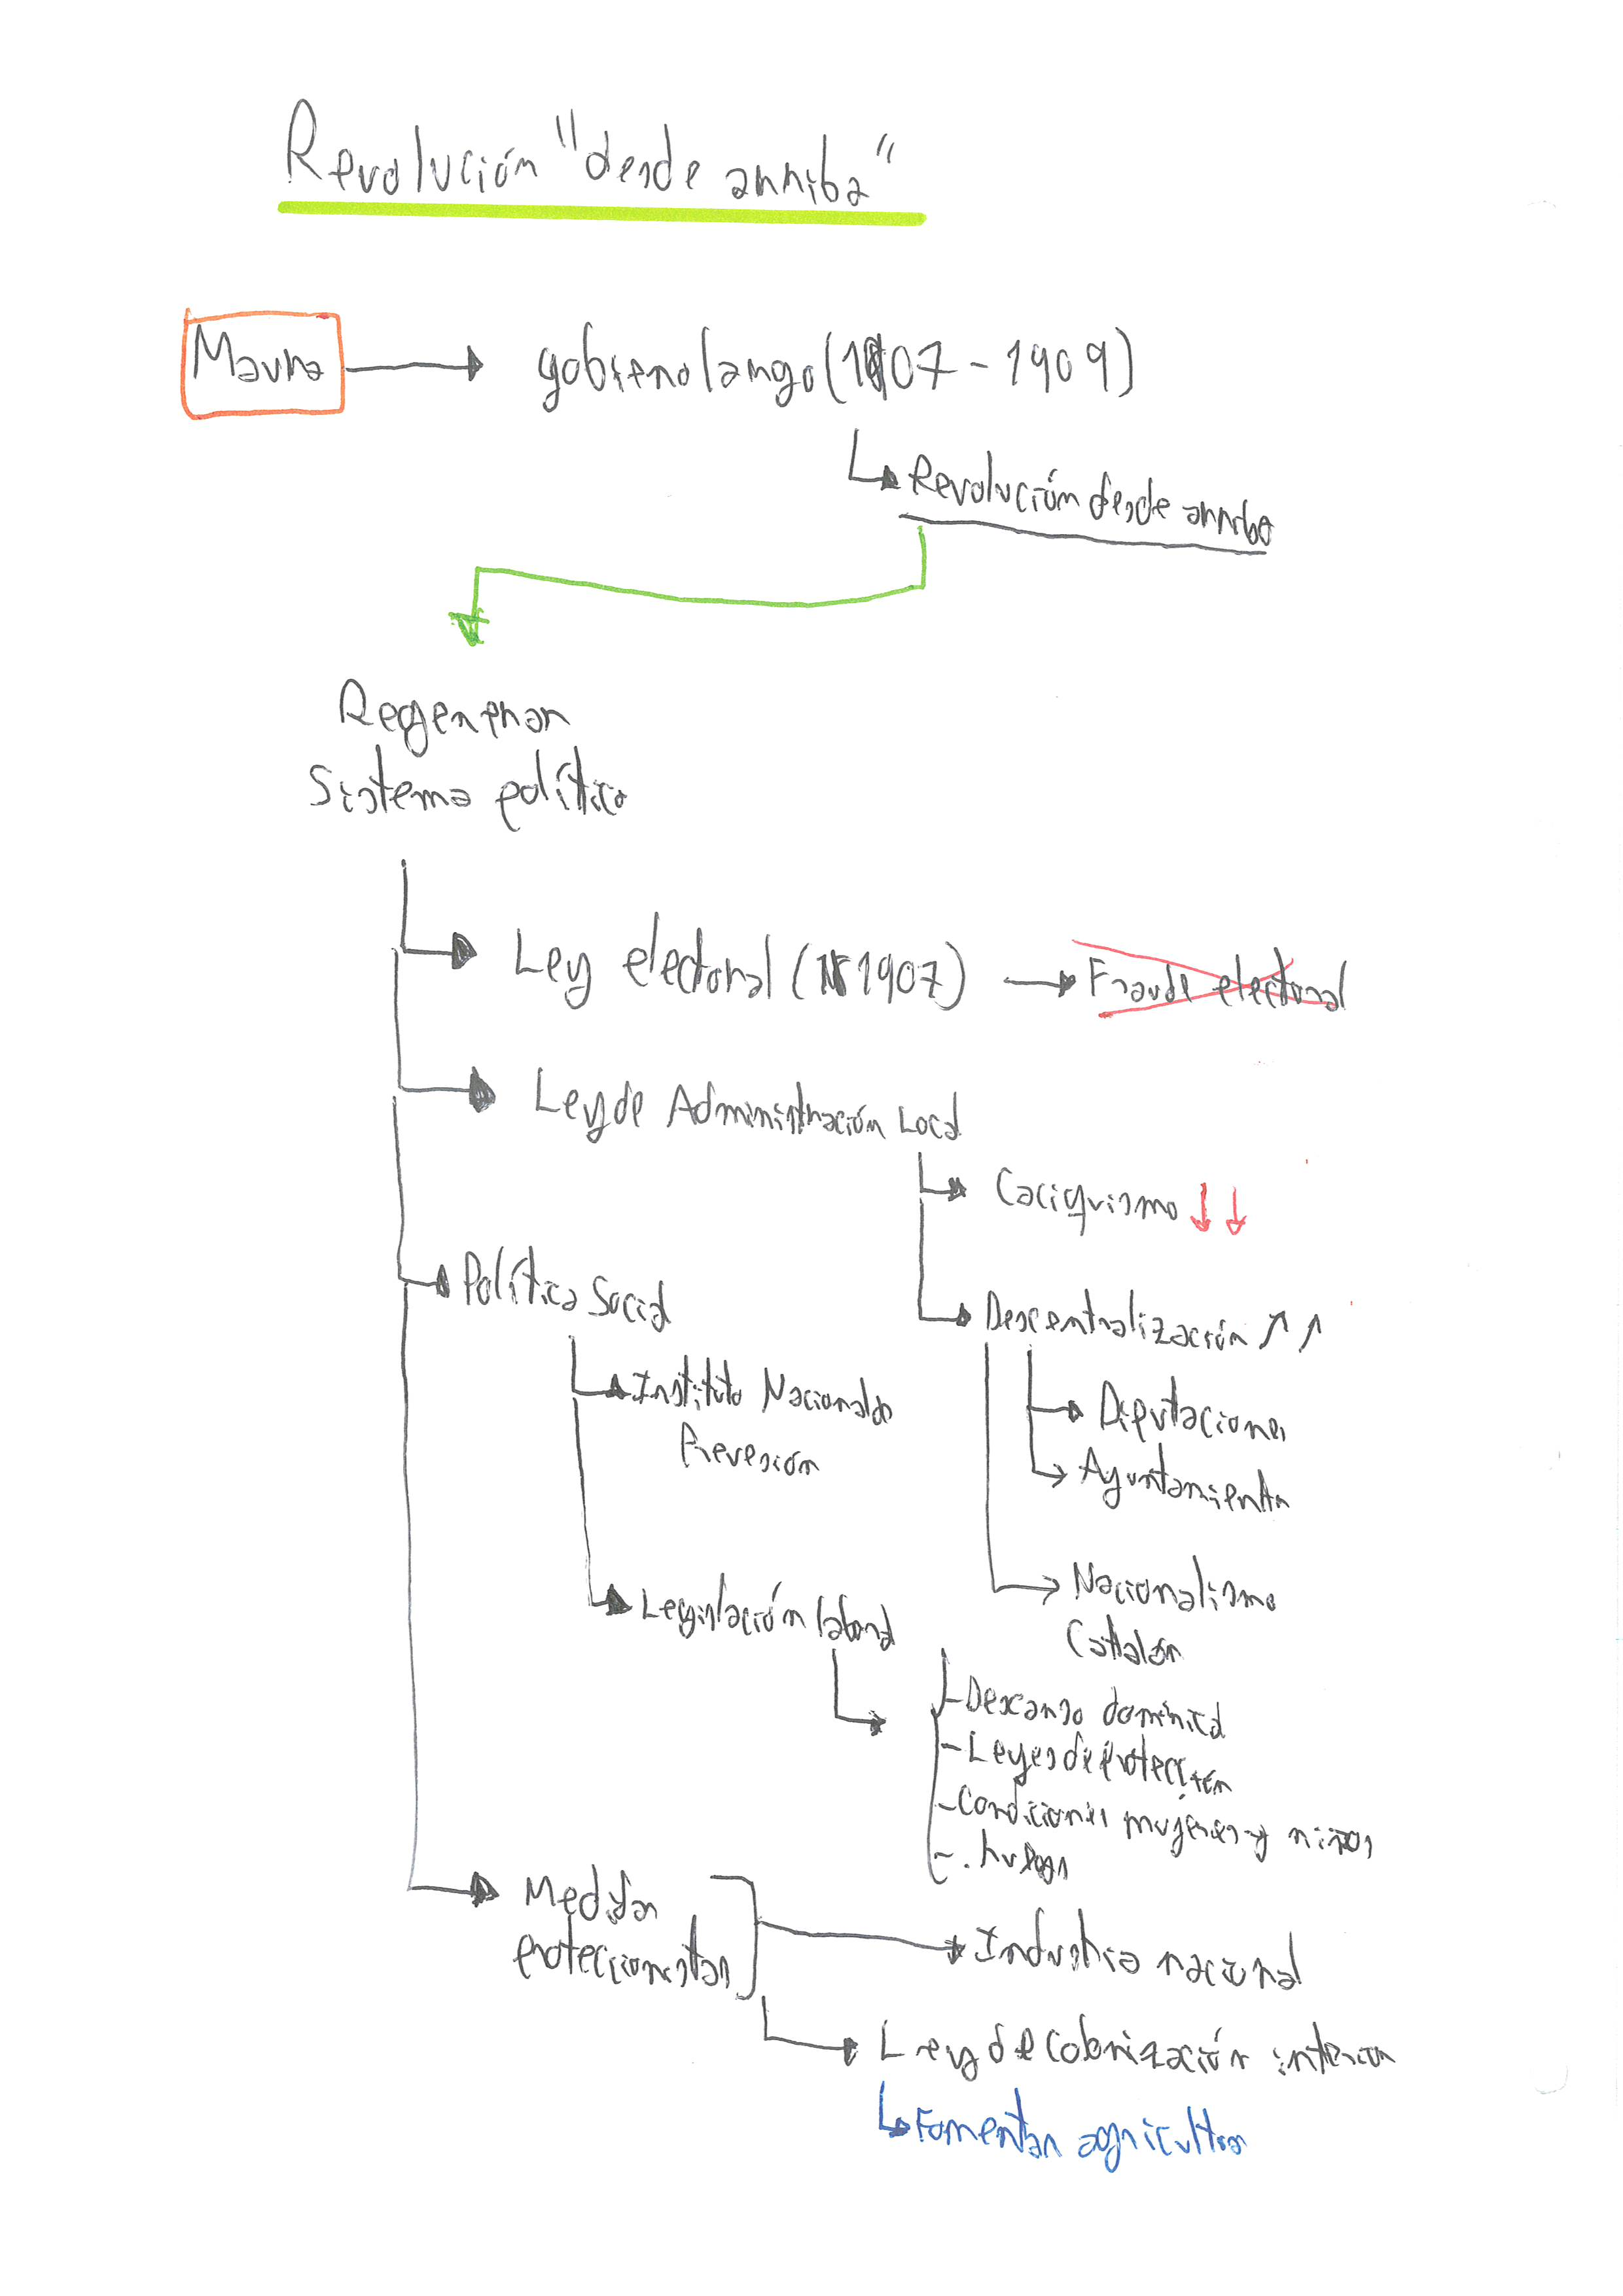 Revolución "desde arriba"
Maura
gobierno largo (1907 - 1909)
Revolución desde arriba
Regenerar
Sistema político
Ley electoral (1907)
Fraude electoral
Ley de Administración Local
Caciquismo ↓↓
Política Social
Descentralización ↗↗
Instituto Nacional de
Previsión
Diputaciones
Ayuntamiento
Nacionalismo
Catalán
Legislación laboral
- Descanso dominical
- Leyes de protección
- Condiciones mujeres y niños
- huelga
Medidas
proteccionistas
Industria nacional
Ley de Colonización interior
Fomentar agricultura